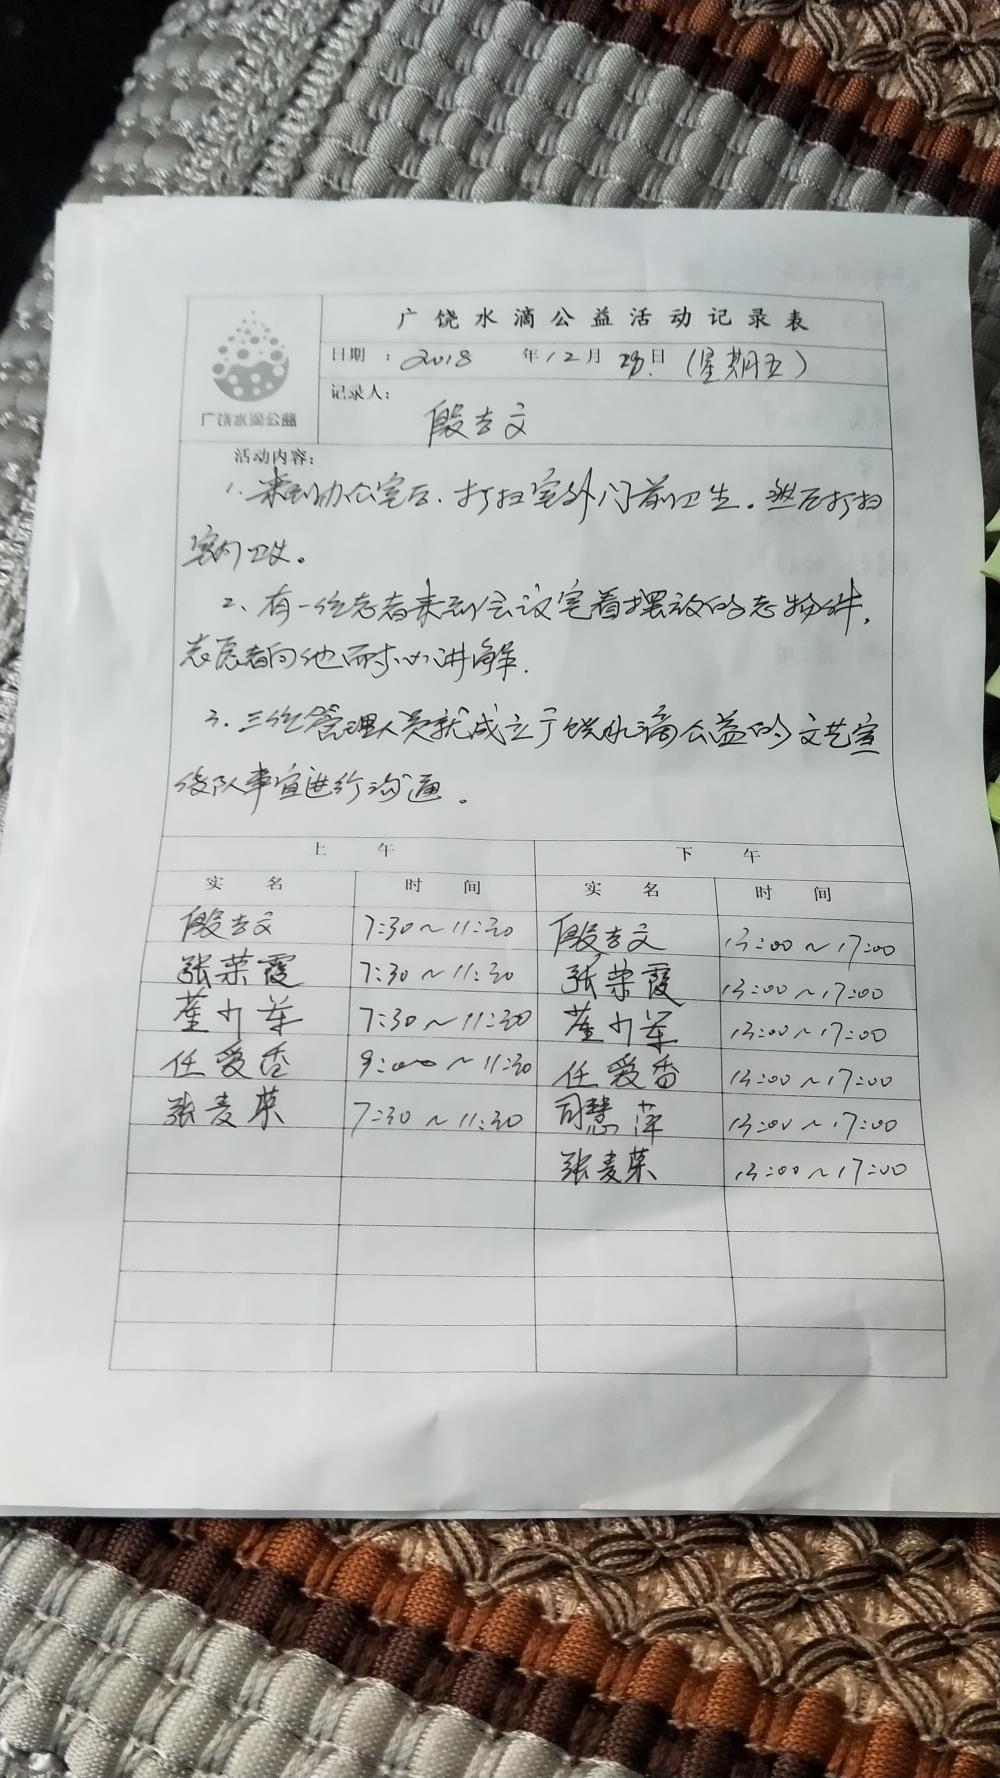 广饶水滴公益活动记录表
日期 : 2018 年 12 月 28 日 (星期五)
广饶水滴公益
记录人:
殷吉文
活动内容:
1. 来到办公室后、打扫室外门前卫生。然后打扫
室内卫生。
2、有一位老者来到会议室看摆放的老物件,
志愿者向他耐心讲解.
3. 三位管理人员就成立广饶水滴公益的文艺宣
传队事宜进行沟通。
上 午 下 午
实 名 时 间 实 名 时 间
殷吉文 7:30~11:30 殷吉文 13:00~17:00
张荣霞 7:30~11:30 张荣霞 13:00~17:00
7:30~11:30 13:00~17:00
任爱香 9:00~11:30 任爱香 13:00~17:00
张麦荣 7:30~11:30 司慧萍 13:00~17:00
张麦荣 13:00~17:00